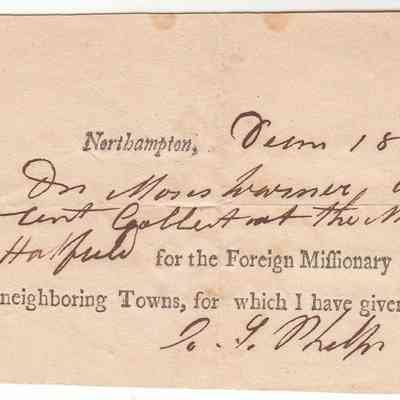 Northampton, 18
Dr Moses Warner,
cent Collect at the M
Hatfield for the Foreign Miſſionary
neighboring Towns, for which I have given
Phelps